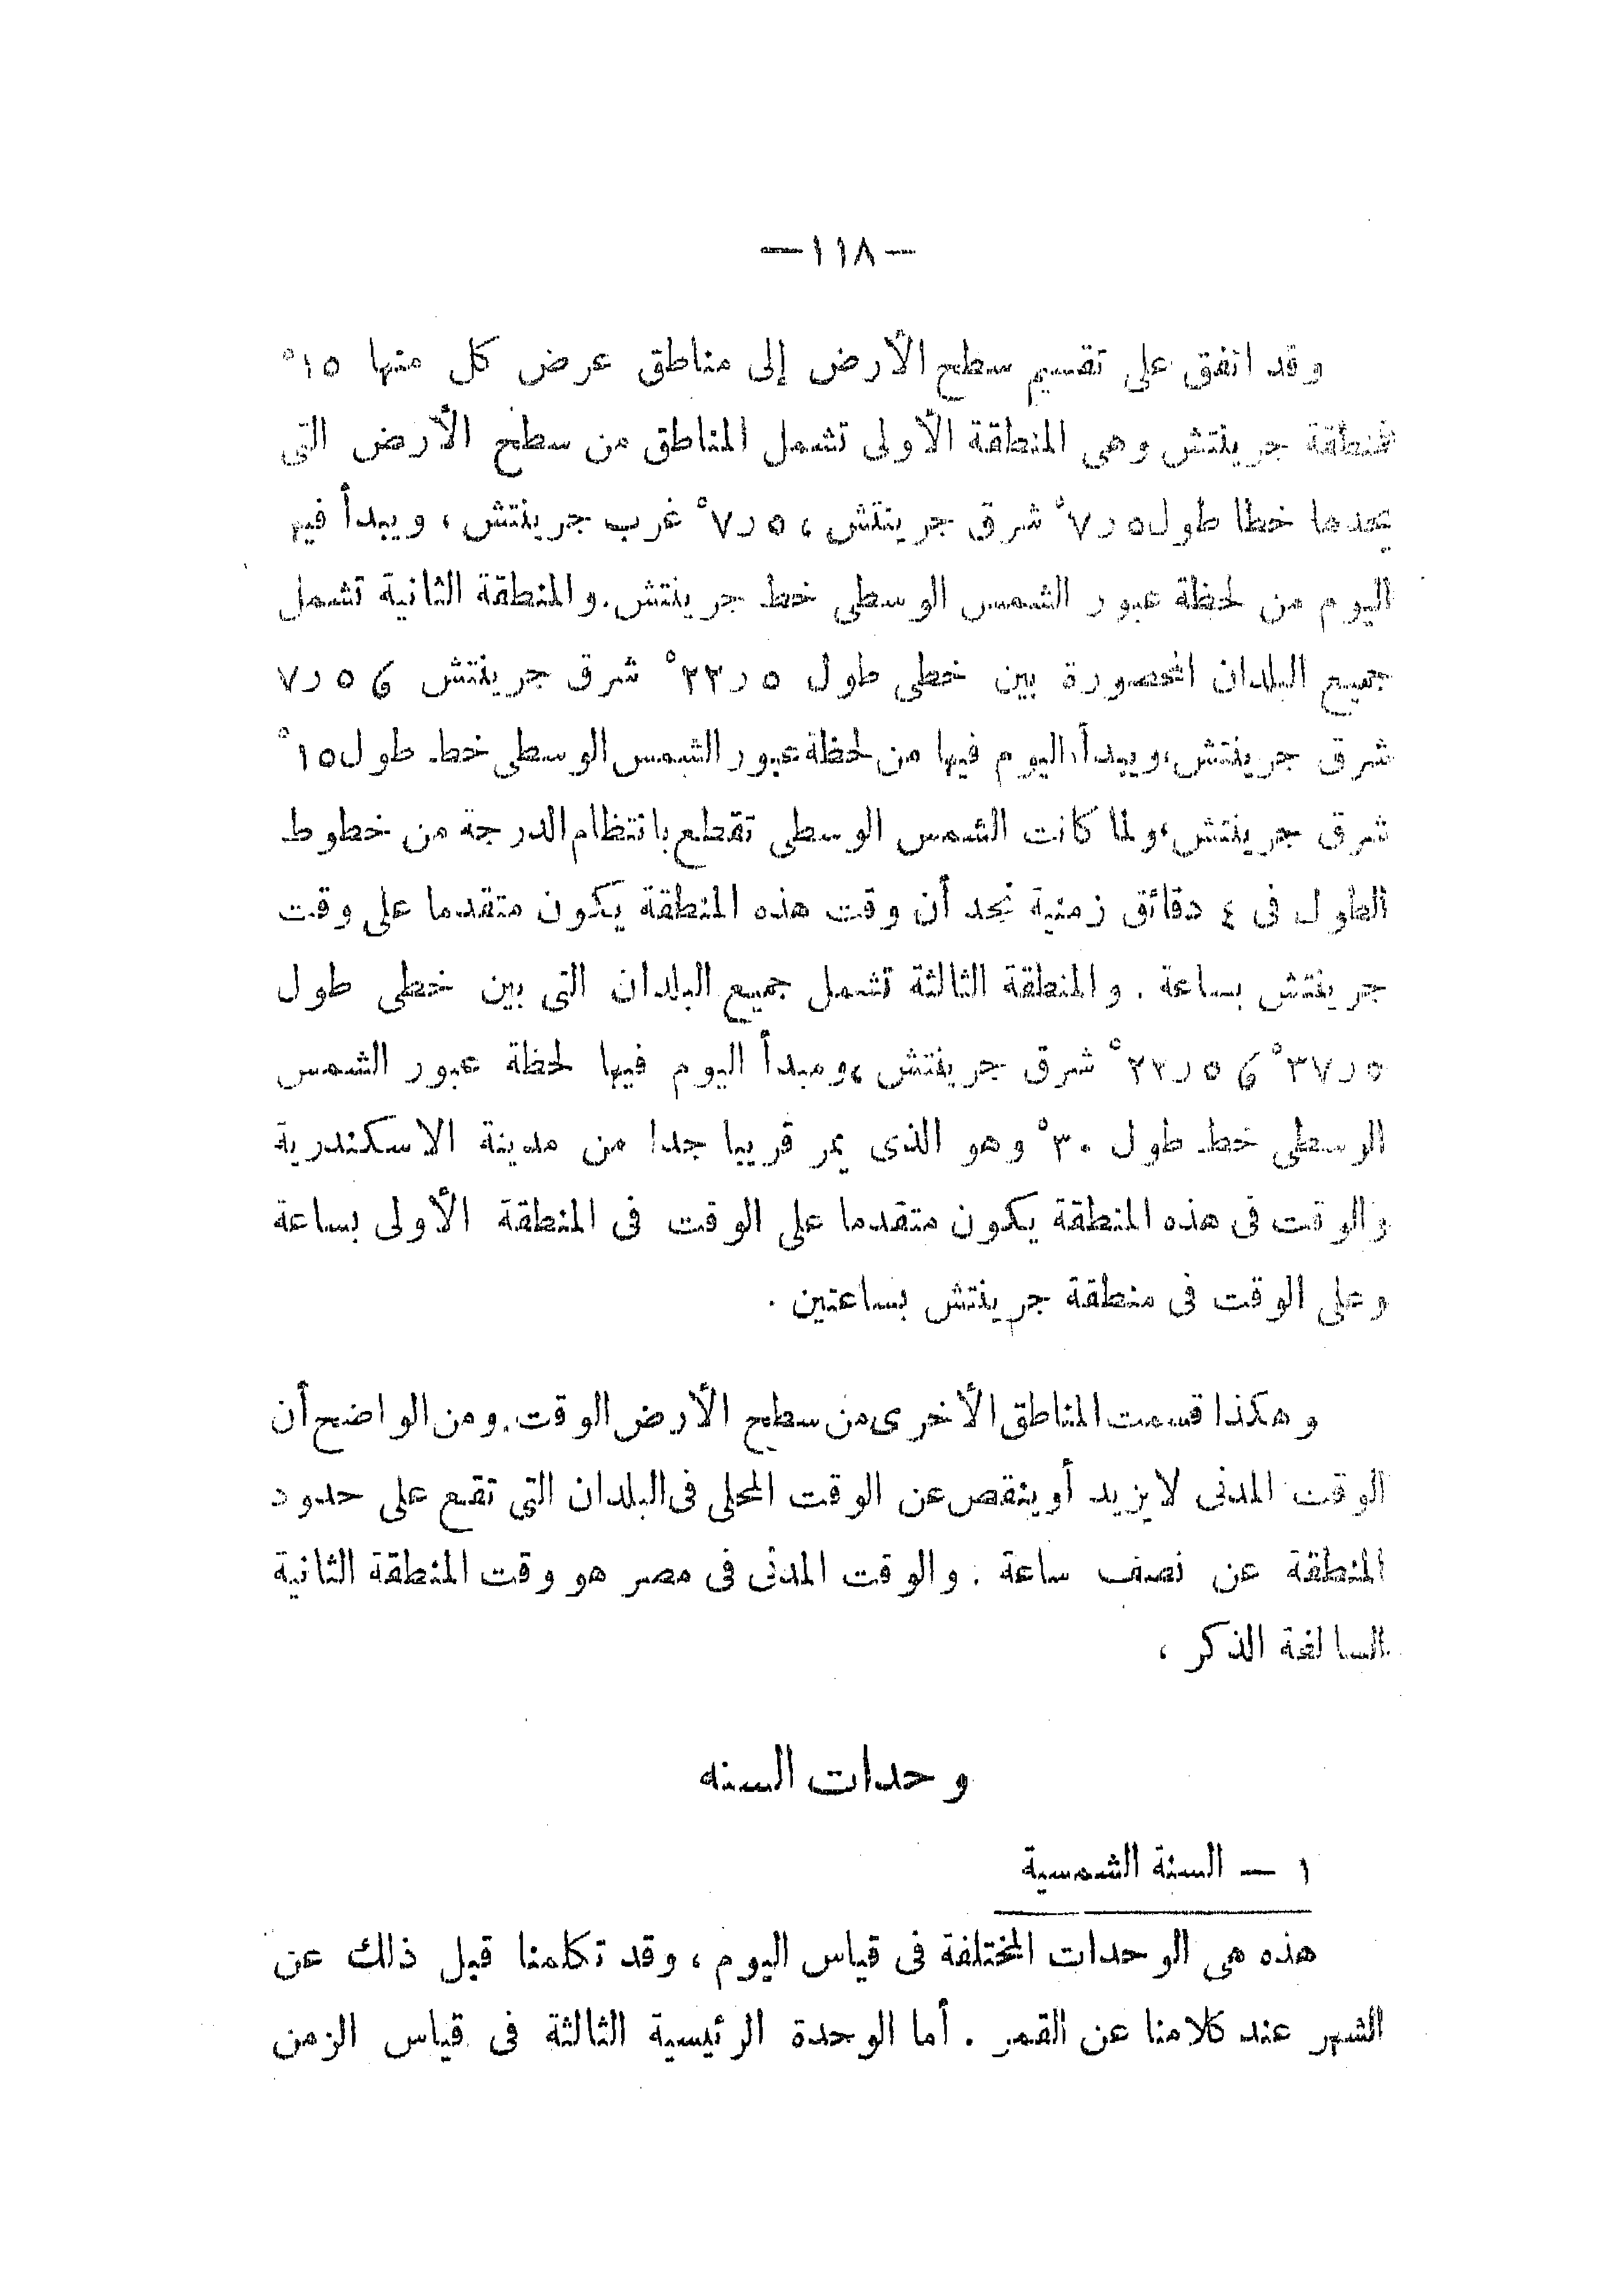 — ١١٨ —
وقد اتفق على تقسيم سطح الأرض إلى مناطق عرض كل منها ١٥°
فمنطقة جرينتش وهى المنطقة الأولى تشمل المناطق من سطح الأرض التى
يحدها خطا طول ٥ر٧° شرق جرينتش ، ٥ر٧° غرب جرينتش ، ويبدأ فيها
اليوم من لحظة عبور الشمس الوسطى خط جرينتش. والمنطقة الثانية تشمل
جميع البلدان المحصورة بين خطى طول ٥ر٢٢° شرق جرينتش ٦ ٥ر٧
شرق جرينتش، ويبدأ اليوم فيها من لحظة عبور الشمس الوسطى خط طول ١٥°
شرق جرينتش، ولما كانت الشمس الوسطى تقطع بانتظام الدرجة من خطوط
الطول فى ٤ دقائق زمنية نجد أن وقت هذه المنطقة يكون متقدما على وقت
جرينتش بساعة . والمنطقة الثالثة تشمل جميع البلدان التى بين خطى طول
٥ر٣٧° ٦ ٥ر٢٢° شرق جرينتش ، ومبدأ اليوم فيها لحظة عبور الشمس
الوسطى خط طول ٣٠° وهو الذى يمر قريبا جدا من مدينة الاسكندرية
والوقت فى هذه المنطقة يكون متقدما على الوقت فى المنطقة الأولى بساعة
وعلى الوقت فى منطقة جرينتش بساعتين .
وهكذا قسمت المناطق الأخرى من سطح الأرض الوقت. ومن الواضح أن
الوقت المدنى لا يزيد أو ينقص عن الوقت المحلى فى البلدان التى تقع على حدود
المنطقة عن نصف ساعة . والوقت المدنى فى مصر هو وقت المنطقة الثانية
السالفة الذكر ،
وحدات السنه
١ — السنة الشمسية
هذه هى الوحدات المختلفة فى قياس اليوم ، وقد تكلمنا قبل ذلك عن
الشهر عند كلامنا عن القمر . أما الوحدة الرئيسية الثالثة فى قياس الزمن